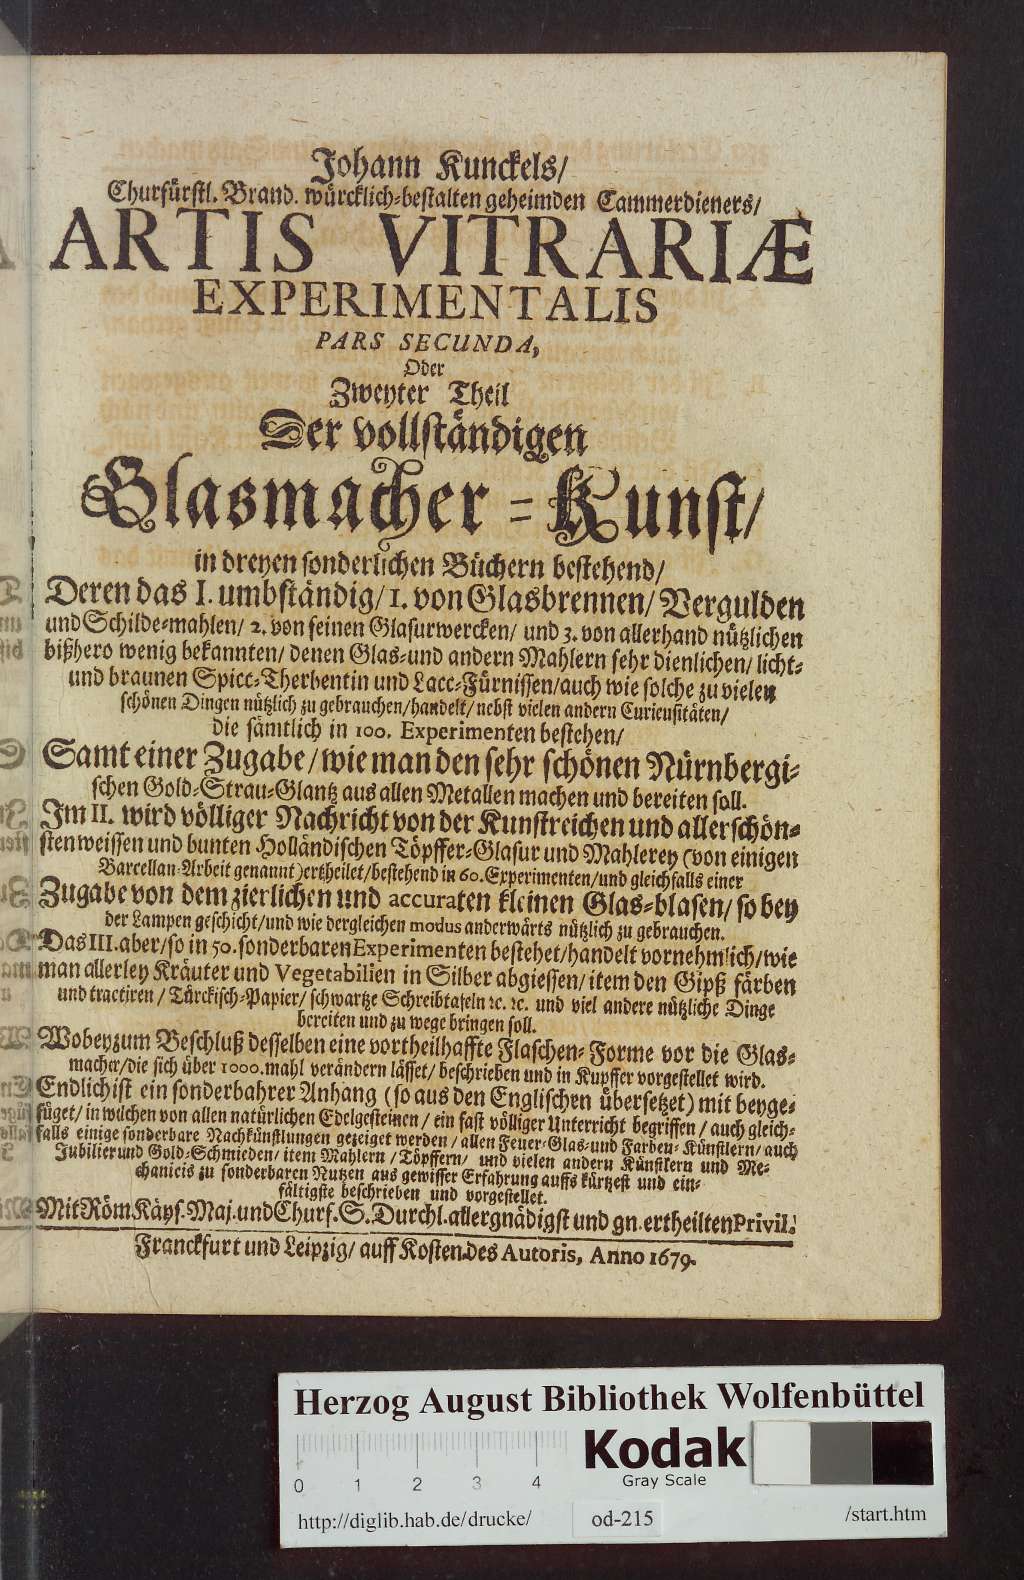 Johann Kunckels/
Churfürstl. Brand. würcklich-bestalten geheimden Cammerdieners/
ARTIS VITRARIÆ
EXPERIMENTALIS
PARS SECUNDA,
Oder
Zweyter Theil
Der vollständigen
Glasmacher-Kunst/
in dreyen sonderlichen Büchern bestehend/
Deren das I. umbständig/ 1. von Glasbrennen/ Vergulden
und Schilde-mahlen/ 2. von seinen Glasurwercken/ und 3. von allerhand nützlichen
bißhero wenig bekannten/ denen Glas-und andern Mahlern sehr dienlichen/ licht-
und braunen Spicc-Therbentin und Lacc-Fürnissen/auch wie solche zu vielen
schönen Dingen nützlich zu gebrauchen/handelt/ nebst vielen andern Curieusitäten/
die sämtlich in 100. Experimenten bestehen/
Samt einer Zugabe/wie man den sehr schönen Nürnbergi-
schen Gold-Strau-Glantz aus allen Metallen machen und bereiten soll.
Im II. wird völliger Nachricht von der Kunstreichen und allerschön-
sten weissen und bunten Holländischen Töpffer-Glasur und Mahlerey (von einigen
Barcellan-Arbeit genannt) ertheilet/bestehend in 60. Experimenten/und gleichfalls einer
Zugabe von dem zierlichen und accuraten kleinen Glas-blasen/ so bey
der Lampen geschicht/und wie dergleichen modus anderwärts nützlich zu gebrauchen.
Das III. aber/so in 50. sonderbaren Experimenten bestehet/handelt vornehmlich/wie
man allerley Kräuter und Vegetabilien in Silber abgiessen/item den Gipß färben
und tractiren/ Türckisch-Papier/ schwartze Schreibtafeln ꝛc. ꝛc. und viel andere nützliche Dinge
bereiten und zu wege bringen soll.
Wobey zum Beschluß desselben eine vortheilhaffte Flaschen-Forme vor die Glas-
macher/die sich über 1000. mahl verändern lässet/ beschrieben und in Kupffer vorgestellet wird.
Endlich ist ein sonderbahrer Anhang (so aus den Englischen übersetzet) mit beyge-
füget/ in wilchen von allen natürlichen Edelgesteinen/ ein fast völliger Unterricht begriffen/ auch gleich-
falls einige sonderbare Nachkünstlungen gezeiget werden/ allen Feuer-Glas-und Farben-Künstlern/ auch
Jubilier und Gold-Schmieden/ item Mahlern/ Töpffern/ und vielen andern Künstlern und Me-
chanicis zu sonderbaren Nutzen aus gewisser Erfahrung auffs kürtzest und ein-
fältigste beschrieben und vorgestellet.
Mit Röm. Käys. Maj. und Churf. S. Durchl. allergnädigst und gn. ertheilten Privil.
Franckfurt und Leipzig/ auff Kosten des Autoris, Anno 1679.
Herzog August Bibliothek Wolfenbüttel
Kodak
Gray Scale
0 1 2 3 4
http://diglib.hab.de/drucke/ od-215 /start.htm